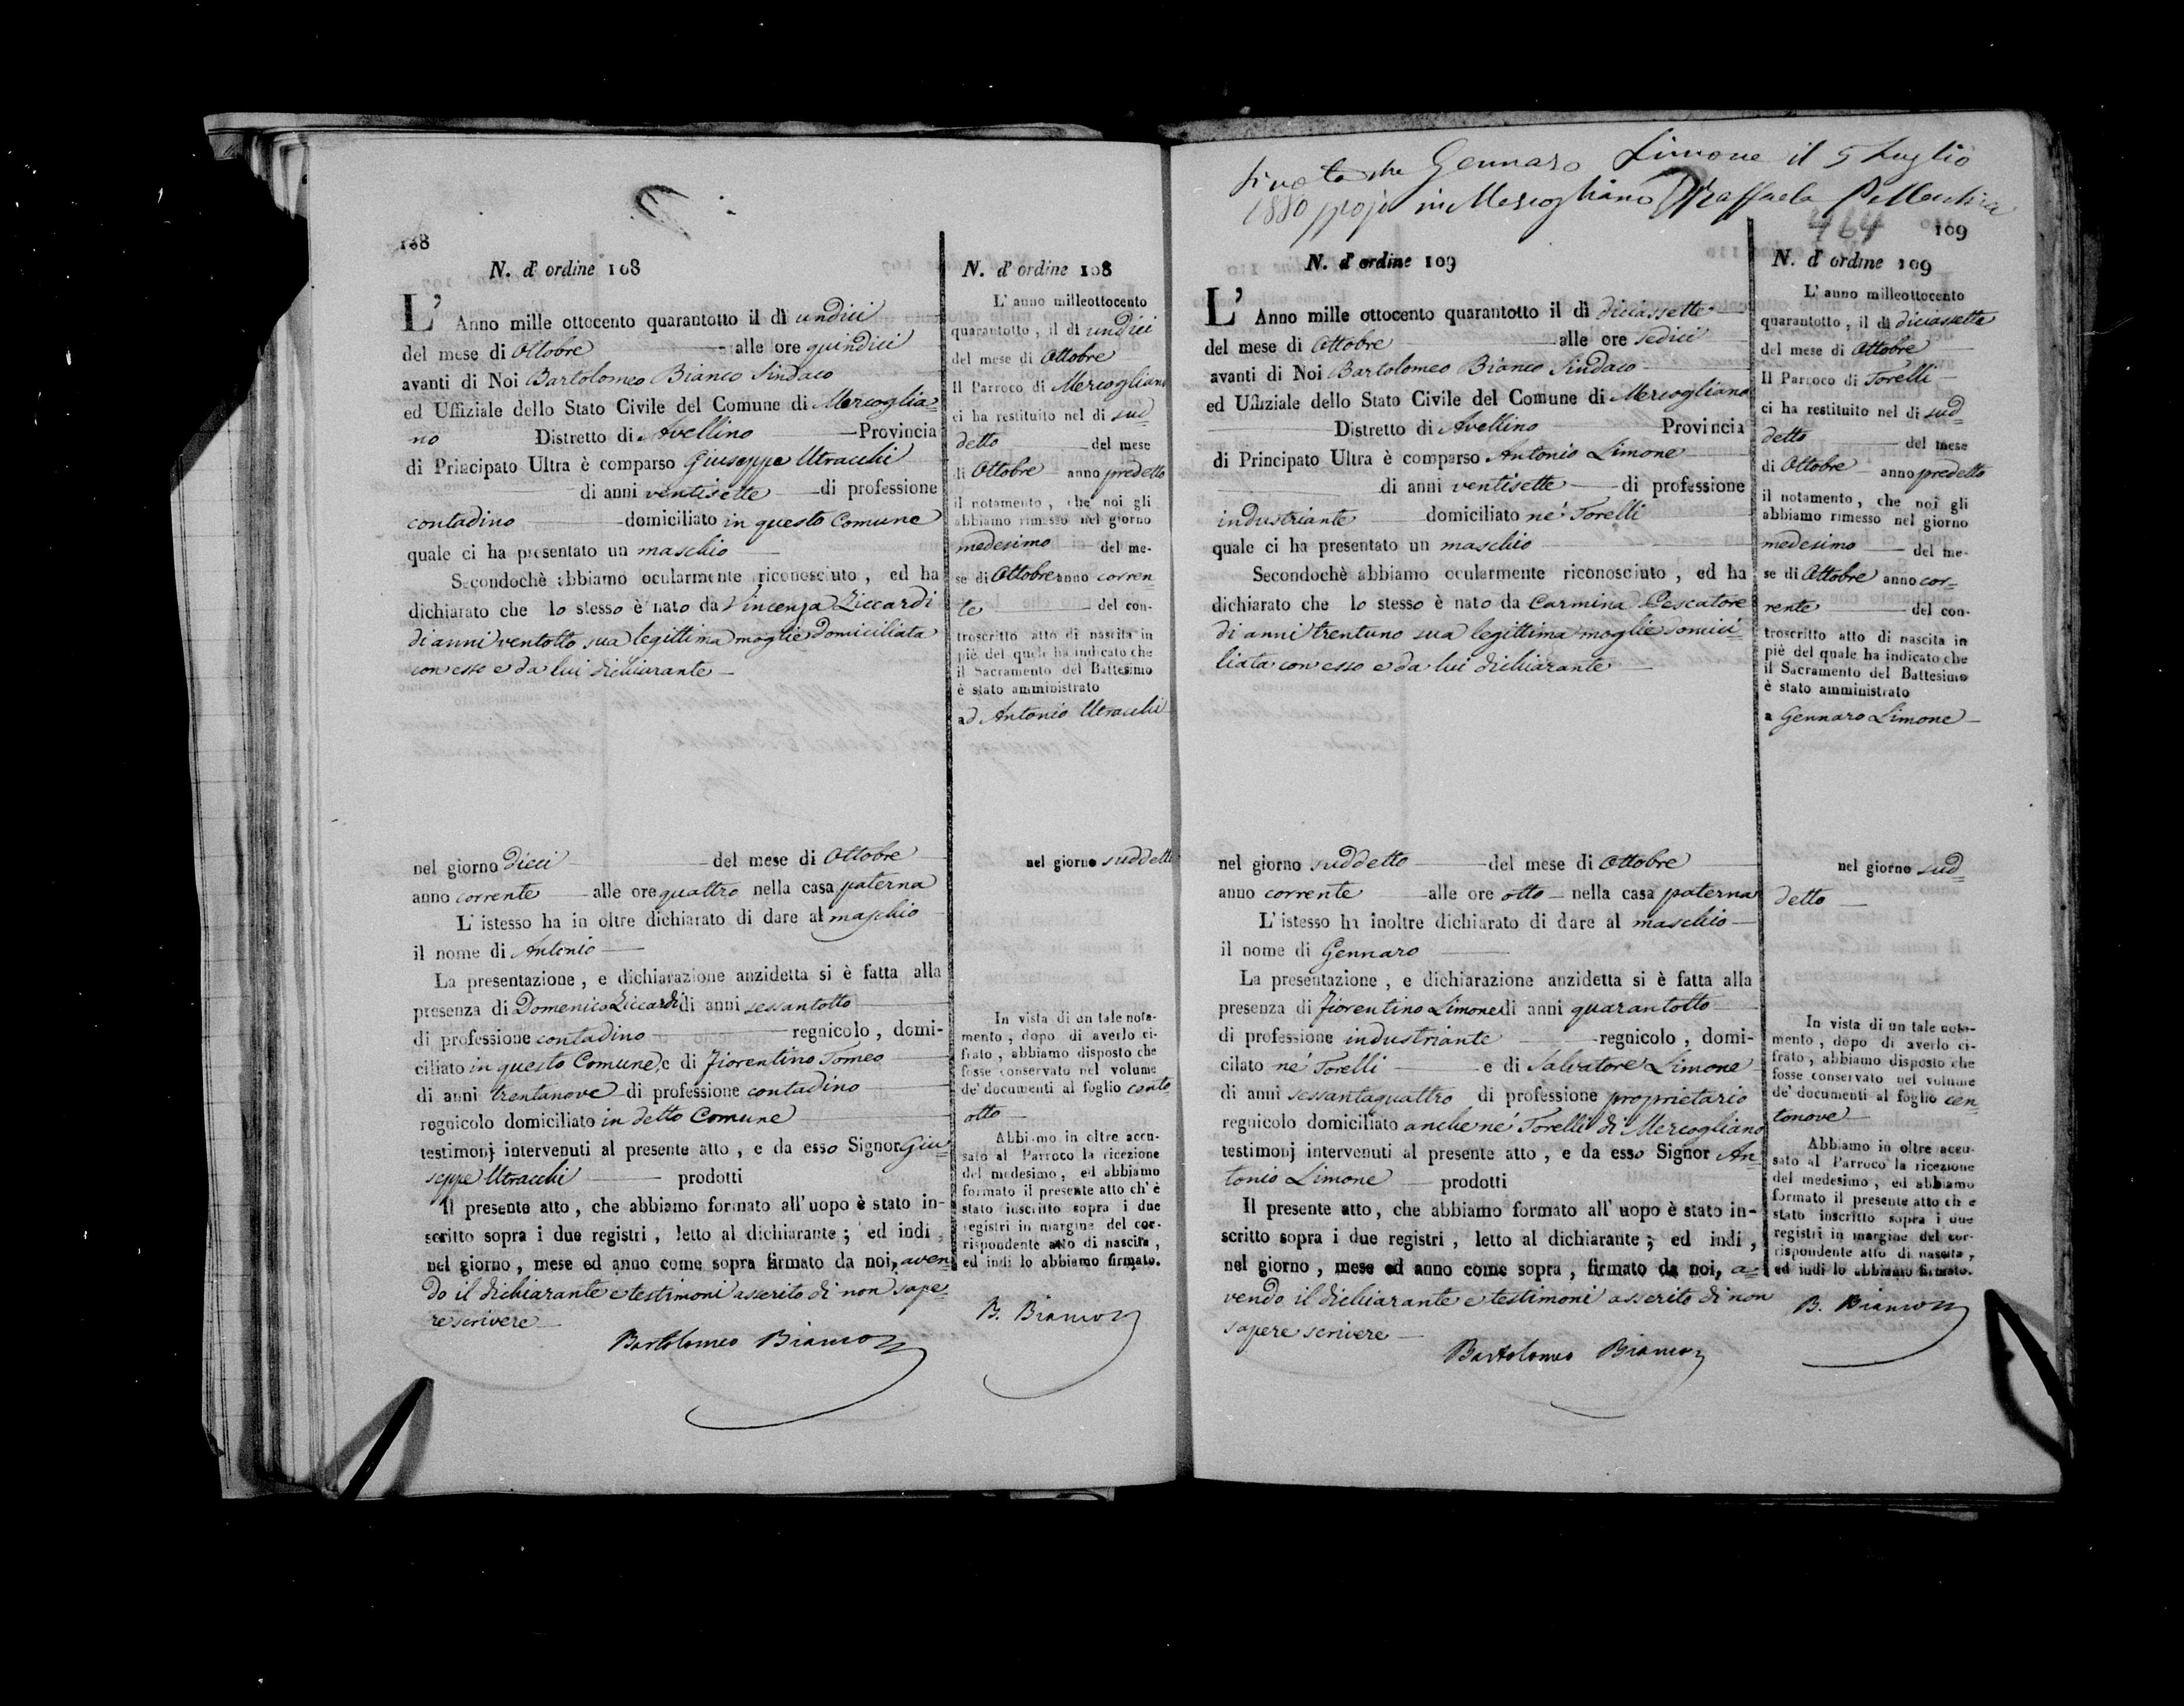 108
N. d' ordine 108
L' Anno mille ottocento quarantotto il dì undici
del mese di Ottobre alle ore quindici
avanti di Noi Bartolomeo Bianco Sindaco
ed Uffiziale dello Stato Civile del Comune di Mercoglia=
no Distretto di Avellino Provincia
di Principato Ultra è comparso Giuseppe Utracchi
di anni ventisette di professione
contadino domiciliato in questo Comune
quale ci ha presentato un maschio
Secondochè abbiamo ocularmente riconosciuto, ed ha
dichiarato che lo stesso è nato da Vincenza Ziccardi
di anni ventotto sua legittima moglie domiciliata
con esso e da lui dichiarante
nel giorno dieci del mese di Ottobre
anno corrente alle ore quattro nella casa paterna
L' istesso ha in oltre dichiarato di dare al maschio
il nome di Antonio
La presentazione, e dichiarazione anzidetta si è fatta alla
presenza di Domenico Ziccardi di anni sessantotto
di professione contadino regnicolo, domi-
ciliato in questo Comune, e di Fiorentino Tomeo
di anni trentanove di professione contadino
regnicolo domiciliato in detto Comune
testimonj intervenuti al presente atto, e da esso Signor Giu=
seppe Utracchi prodotti
Il presente atto, che abbiamo formato all'uopo è stato in-
scritto sopra i due registri, letto al dichiarante; ed indi,
nel giorno, mese ed anno come sopra firmato da noi, aven=
do il dichiarante e testimoni asserito di non sape=
re scrivere
Bartolomeo Bianco
N. d' ordine 108
L' anno milleottocento
quarantotto, il dì undici
del mese di Ottobre
Il Parroco di Mercogliano
ci ha restituito nel dì sud=
detto del mese
di Ottobre anno predetto
il notamento, che noi gli
abbiamo rimesso nel giorno
medesimo del me-
se di Ottobre anno corren=
te del con-
troscritto atto di nascita in
piè del quale ha indicato che
il Sacramento del Battesimo
è stato amministrato
ad Antonio Utracchi
nel giorno suddetto
In vista di un tale nota-
mento, dopo di averlo ci-
frato, abbiamo disposto che
fosse conservato nel volume
de' documenti al foglio cento
otto
Abbiamo in oltre accu-
sato al Parroco la ricezione
del medesimo, ed abbiamo
formato il presente atto ch' è
stato inscritto sopra i due
registri in margine del cor-
rispondente atto di nascita,
ed indi lo abbiamo firmato.
B. Bianco
Gennaro Limone il 5 Luglio
1880 in Mercogliano Raffaela
464
109
N. d' ordine 109
L' Anno mille ottocento quarantotto il dì diciassette
del mese di Ottobre alle ore Sedici
avanti di Noi Bartolomeo Bianco Sindaco
ed Uffiziale dello Stato Civile del Comune di Mercogliano
Distretto di Avellino Provincia
di Principato Ultra è comparso Antonio Limone
di anni ventisette di professione
industriante domiciliato né Torelli
quale ci ha presentato un maschio
Secondochè abbiamo ocularmente riconosciuto, ed ha
dichiarato che lo stesso è nato da Carmina Pescatore
di anni trentuno sua legittima moglie domici=
liata con esso e da lui dichiarante
nel giorno suddetto del mese di Ottobre
anno corrente alle ore otto nella casa paterna
L' istesso ha inoltre dichiarato di dare al maschio
il nome di Gennaro
La presentazione, e dichiarazione anzidetta si è fatta alla
presenza di Fiorentino Limone di anni quarantotto
di professione industriante regnicolo, domi-
cilato né Torelli e di Salvatore Limone
di anni sessantaquattro di professione proprietario
regnicolo domiciliato anche né Torelli di Mercogliano
testimonj intervenuti al presente atto, e da esso Signor An=
tonio Limone prodotti
Il presente atto, che abbiamo formato all' uopo è stato in-
scritto sopra i due registri, letto al dichiarante; ed indi,
nel giorno, mese ed anno come sopra, firmato da noi, a=
vendo il dichiarante e testimoni asserito di non
sapere scrivere
Bartolomeo Bianco
N. d' ordine 109
L' anno milleottocento
quarantotto, il dì diciassette
del mese di Ottobre
Il Parroco di Torelli
ci ha restituito nel dì sud=
detto del mese
di Ottobre anno predetto
il notamento, che noi gli
abbiamo rimesso nel giorno
medesimo del me-
se di Ottobre anno cor=
rente del con-
troscritto atto di nascita in
piè del quale ha indicato che
il Sacramento del Battesimo
è stato amministrato
a Gennaro Limone
nel giorno sud=
detto
In vista di un tale nota-
mento, dopo di averlo ci-
frato, abbiamo disposto che
fosse conservato nel volume
de' documenti al foglio cen=
tonove
Abbiamo in oltre accu-
sato al Parroco la ricezione
del medesimo, ed abbiamo
formato il presente atto ch è
stato inscritto sopra i due
registri in margine del cor-
rispondente atto di nascita,
ed indi lo abbiamo firmato.
B. Bianco